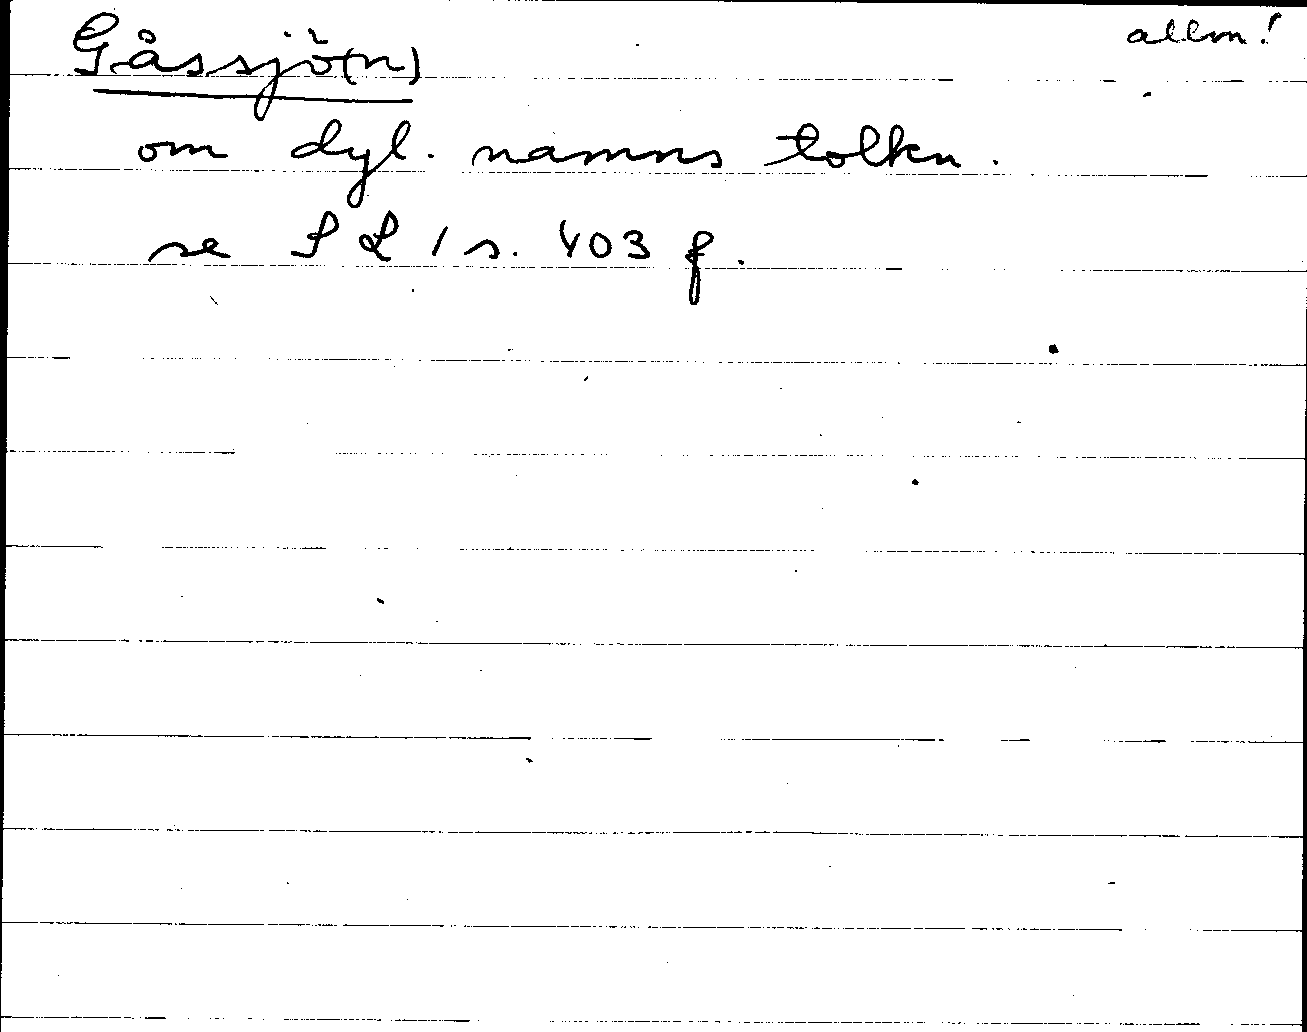 allm!
Gåssjö(n)
om dyl. namns tolkn.
se SL 1 s. 403 f.